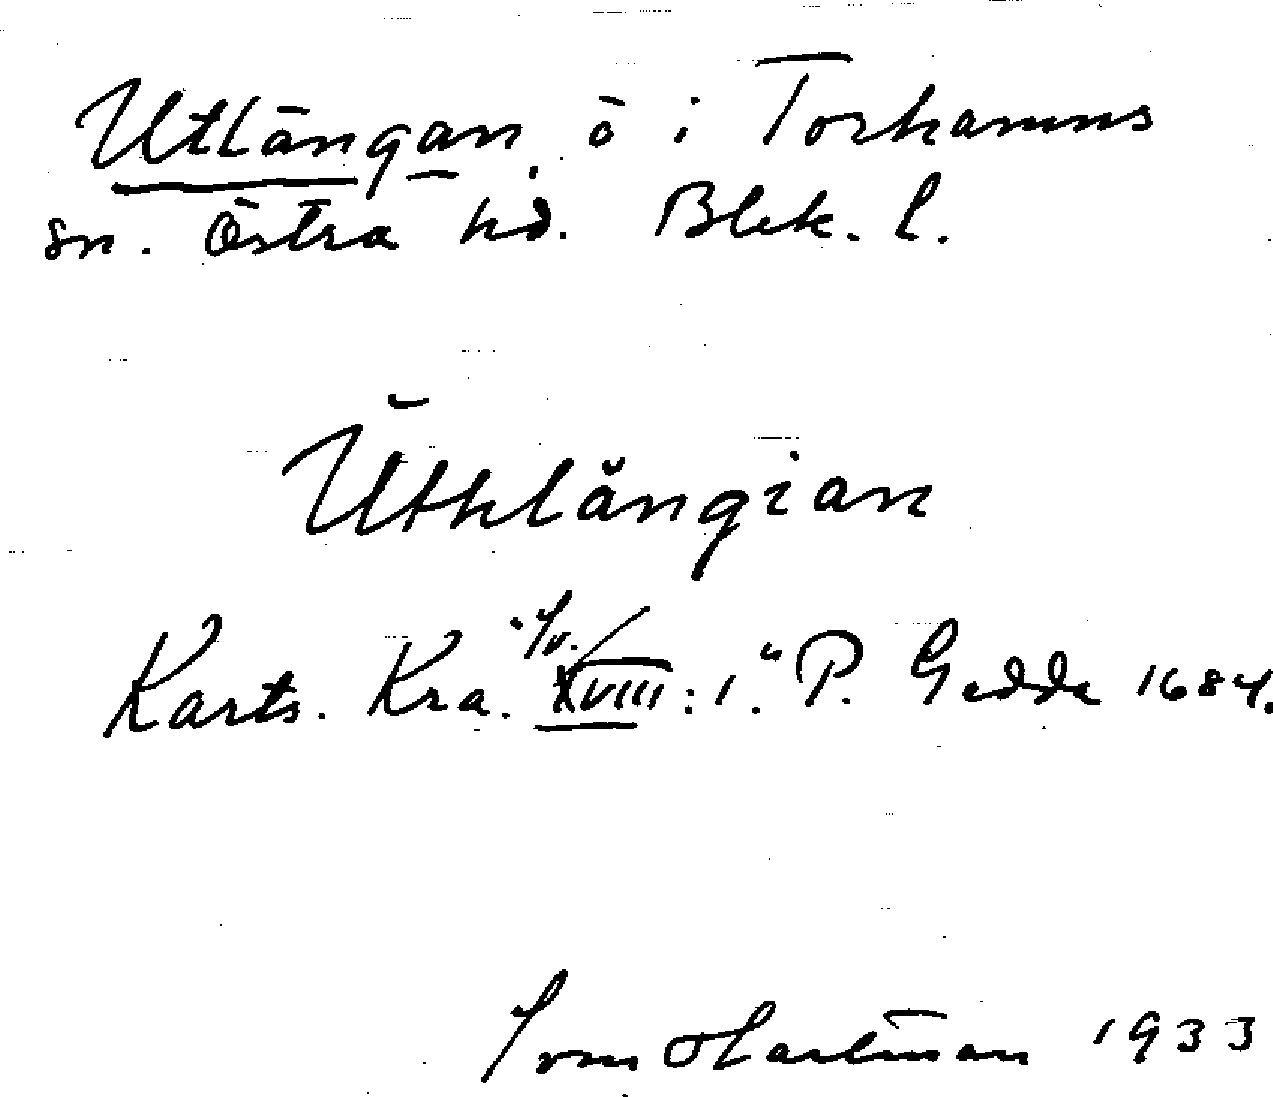 Utlängan, ö i Torhamns
sn. Östra hd. Blek. l.
Ŭthlångian
Karts. Kra. XVIII: 1. P. Gedda 1684.
Hartman 1933